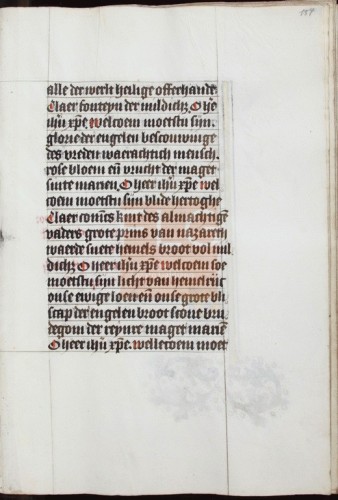 alle der werlt heilige offerhande
Claer fonteyn der mildich3 O he
ihu xpe welcoem moetstu sijn.
glorie der engelen bescouwinge
des vreden waerachtich mensch.
rose bloem en vrucht der maget
sinte marien, O heer ihu xpe wel
coem moetstu sijn blide hertoghe
Claer conincs kint des almachtige
vaders grote prins van nazareth
waerde suete hemels broot vol mil
dich3 O heer ihu xpe welcoem soe
moetstu sijn licht van hemelrijc
onse ewige loen en onse grote bli
scap der engelen broot scone bru
degom der reynre maget marie
O heer ihu xpe. wellecoem moet